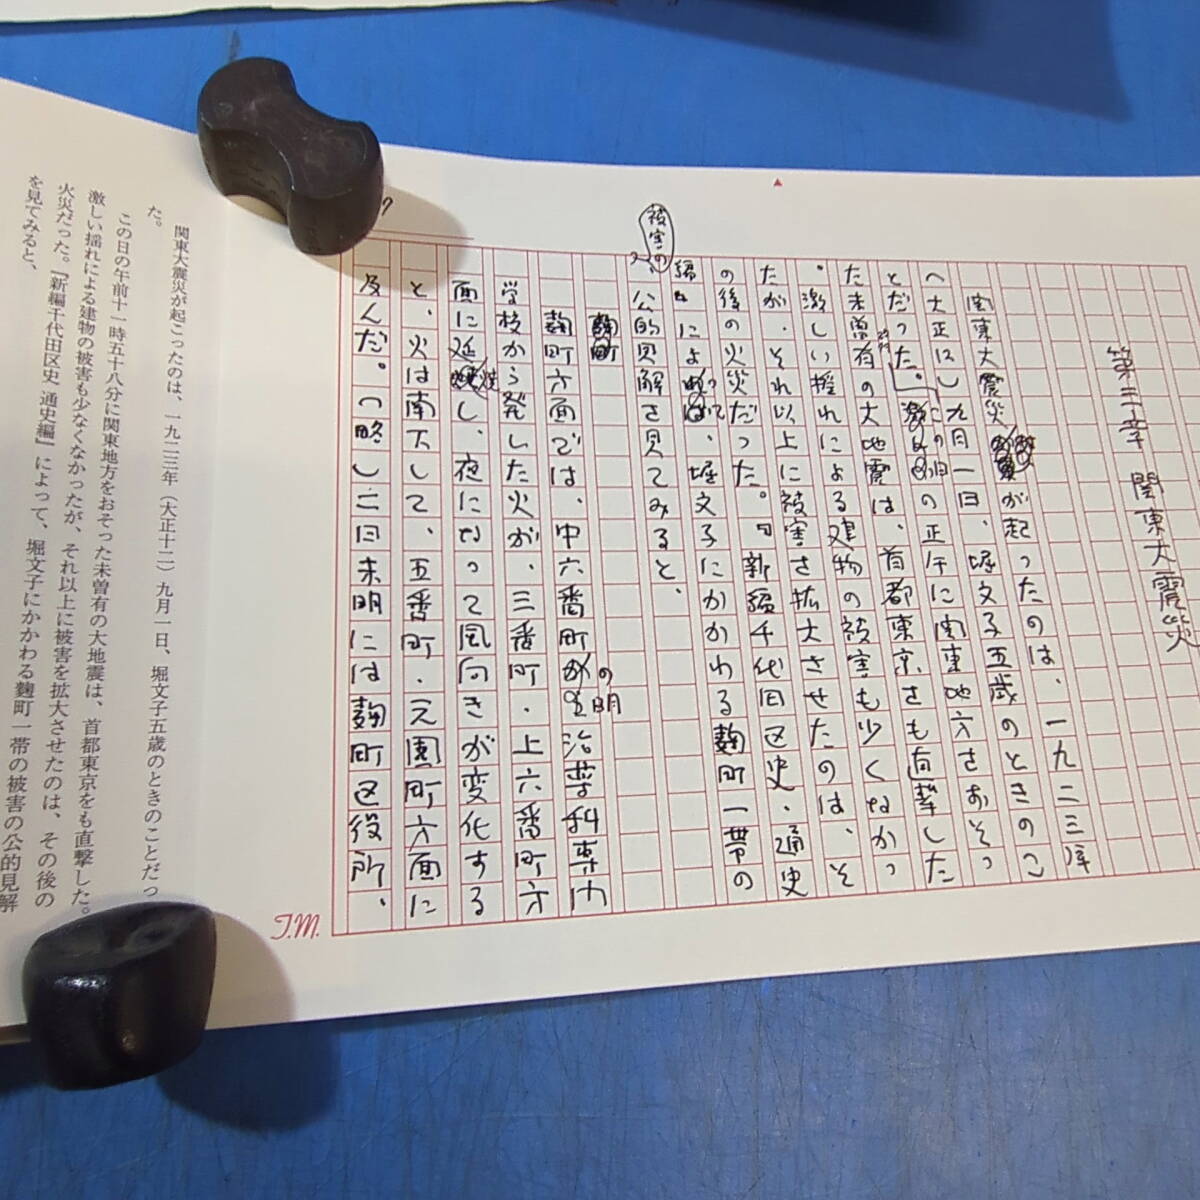 第三章 関東大震災
関東大震災が起こったのは、一九二三年
(大正12)九月一日、堀文子五歳のときのこ
とだった。この日の正午に関東地方をおそっ
た未曽有の大地震は、首都東京をも直撃した
。激しい揺れによる建物の被害も少くなかっ
たが、それ以上に被害を拡大させたのは、そ
の後の火災だった。『新編千代田区史・通史
編』によって、堀文子にかかわる麹町一帯の
被害の
公的見解を見てみると、
麹町
麹町方面では、中六番町の明治薬科専門
学校から発した火が、三番町・上六番町方
面に延焼し、夜になって風向きが変化する
と、火は南下して、五番町・元園町方面に
及んだ。(略)二日未明には麹町区役所、
T.M.
7
関東大震災が起こったのは、一九二三年(大正十二)九月一日、堀文子五歳のときのことだっ
た。
この日の午前十一時五十八分に関東地方をおそった未曽有の大地震は、首都東京をも直撃した。
激しい揺れによる建物の被害も少なくなかったが、それ以上に被害を拡大させたのは、その後の
火災だった。『新編千代田区史 通史編』によって、堀文子にかかわる麴町一帯の被害の公的見解
を見てみると、